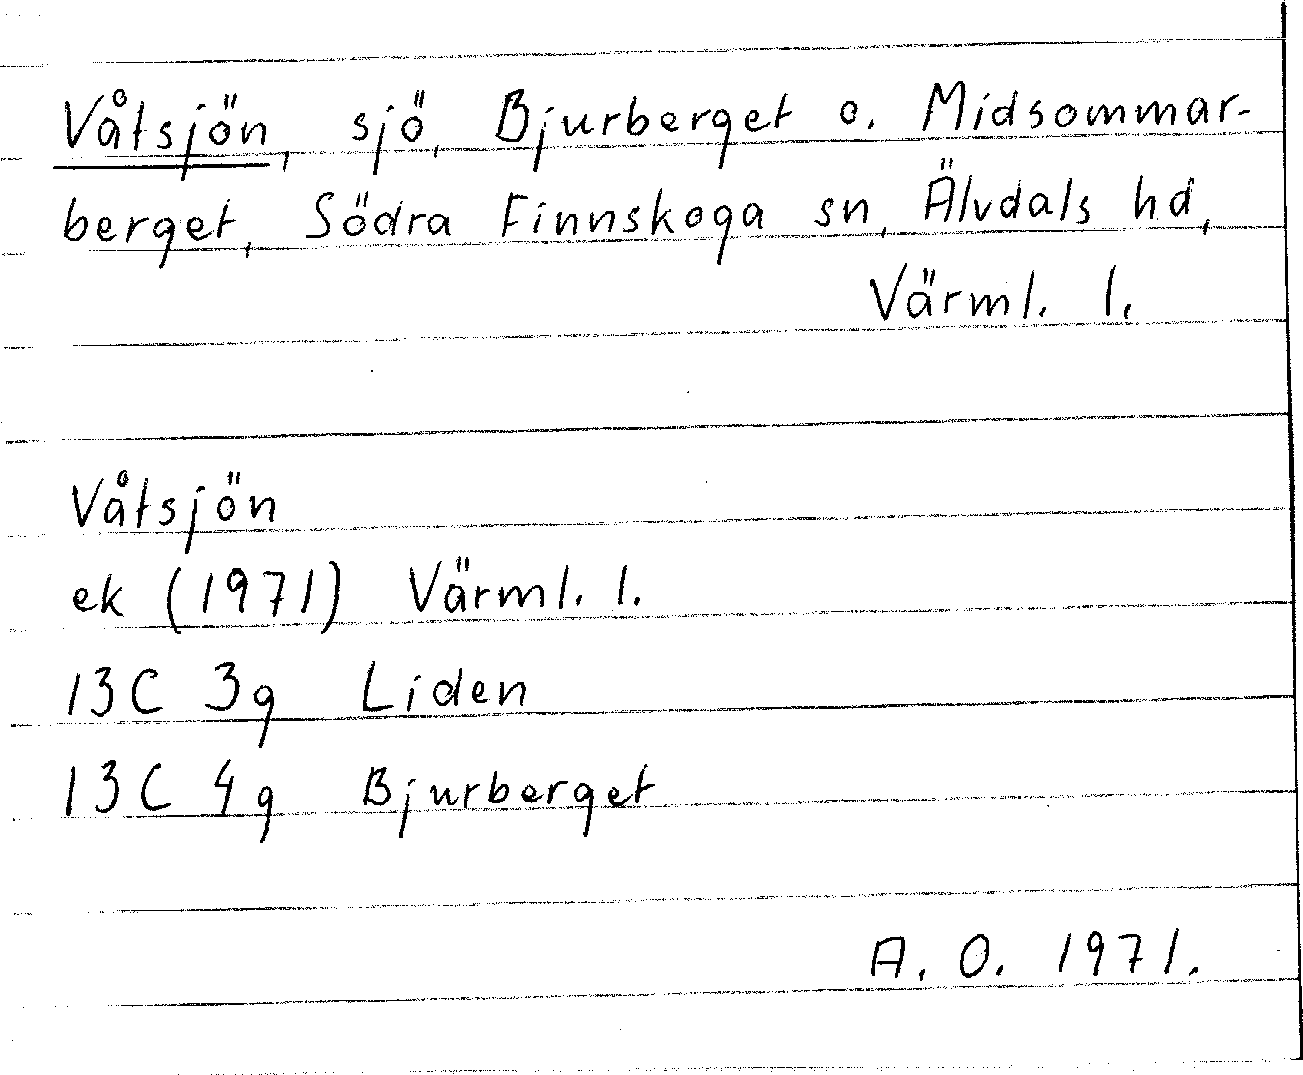 Våtsjön, sjö, Bjurberget o. Midsommar-
berget, Södra Finnskoga sn, Älvdals hd,
Värml. l.
Våtsjön
ek (1971) Värml. l.
13C 3g Liden
13C 4g Bjurberget
A. O. 1971.